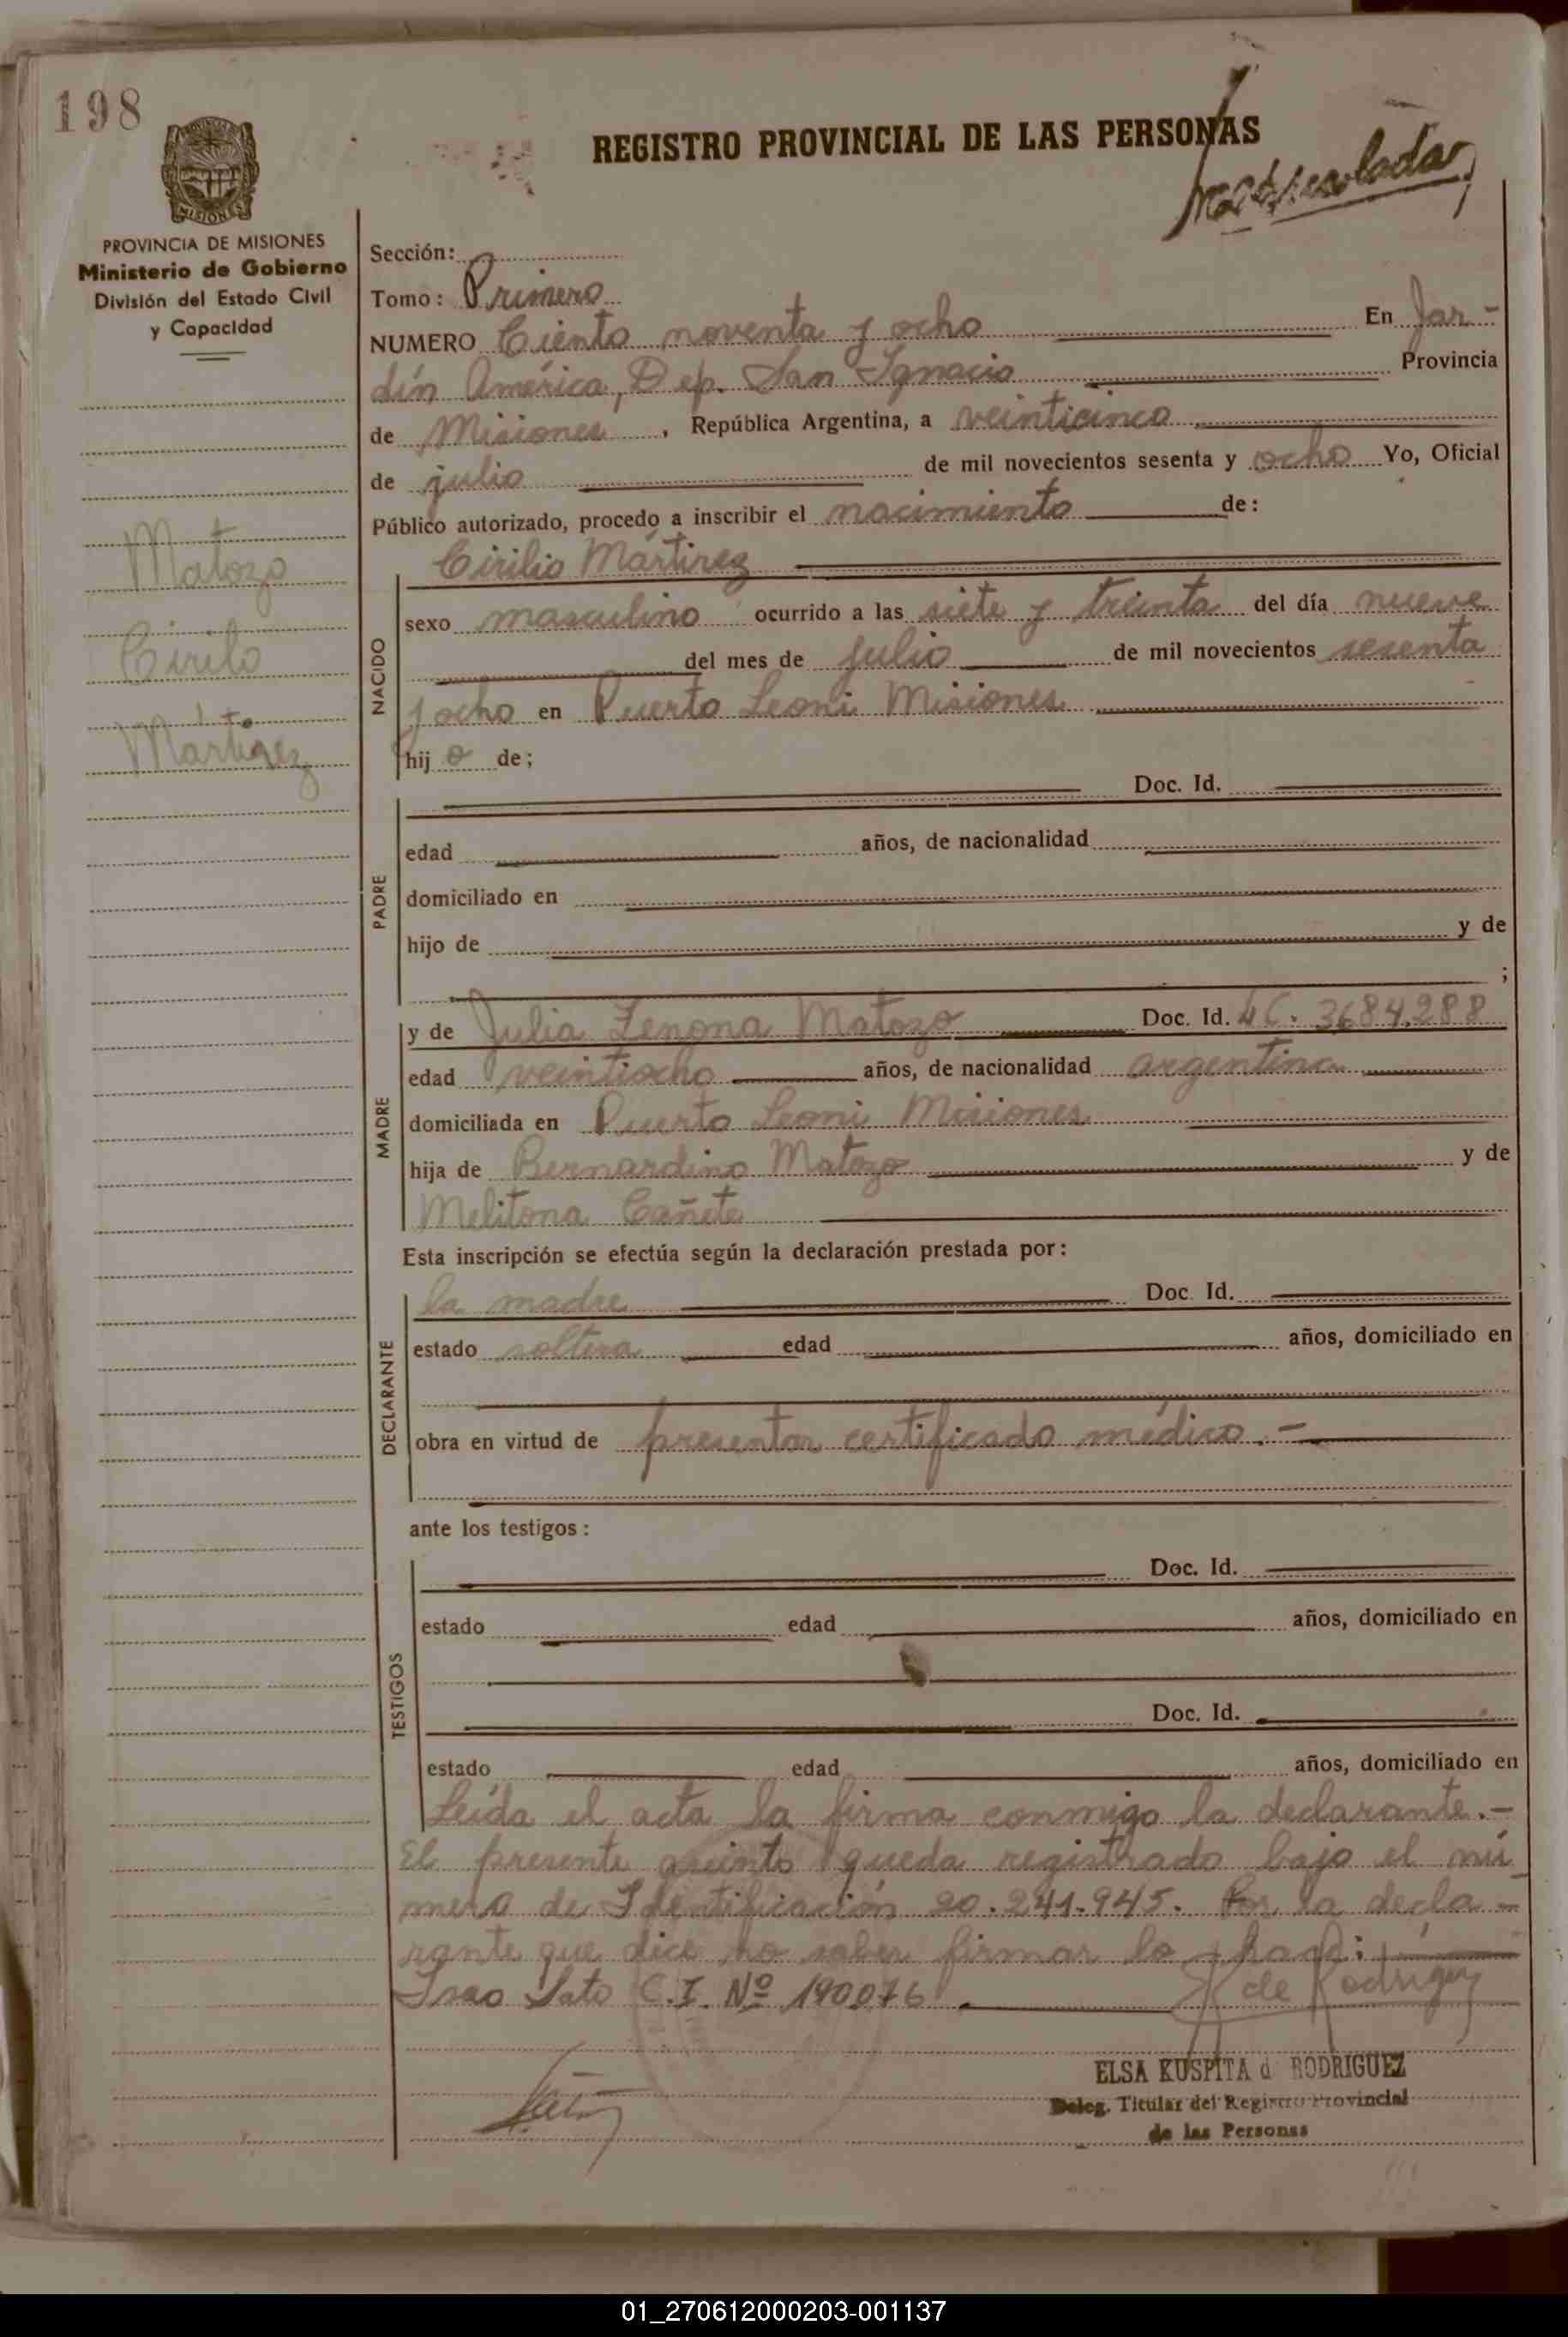 198
REGISTRO PROVINCIAL DE LAS PERSONAS
MISIONES
PROVINCIA DE MISIONES
Ministerio de Gobierno
División del Estado Civil
y Capacidad
Matozo
Cirilo
Mártirez
Sección:
Tomo: Primero
NUMERO Ciento noventa y ocho En Jar-
dín América, Dep. San Ignacio Provincia
de Misiones, República Argentina, a veinticinco
de julio de mil novecientos sesenta y ocho Yo, Oficial
Público autorizado, procedo a inscribir el nacimiento de:
Cirilio Mártirez
NACIDO
sexo masculino ocurrido a las siete y treinta del día nueve
del mes de julio de mil novecientos sesenta
y ocho en Puerto Leoni Misiones
hijo de;
PADRE
Doc. Id.
edad años, de nacionalidad
domiciliado en
hijo de y de
;
MADRE
y de Julia Zenona Matozo Doc. Id. LC. 3684.288
edad veintiocho años, de nacionalidad argentina
domiciliada en Puerto Leoni Misiones
hija de Bernardino Matozo y de
Melitona Cañete
Esta inscripción se efectúa según la declaración prestada por:
DECLARANTE
la madre Doc. Id.
estado soltera edad años, domiciliado en
obra en virtud de presentar certificado médico.-
ante los testigos:
TESTIGOS
Doc. Id.
estado edad años, domiciliado en
Doc. Id.
estado edad años, domiciliado en
Leída el acta la firma conmigo la declarante.-
El presente asiento queda registrado bajo el nú
mero de Identificación 20.241.945. Por la decla-
rante que dice no saber firmar lo hace:
Isao Sato C.I. Nº 190076
de Rodriguez
ELSA KUSPITA d RODRIGUEZ
Deleg. Titular del Registro Provincial
de las Personas
01_270612000203-001137